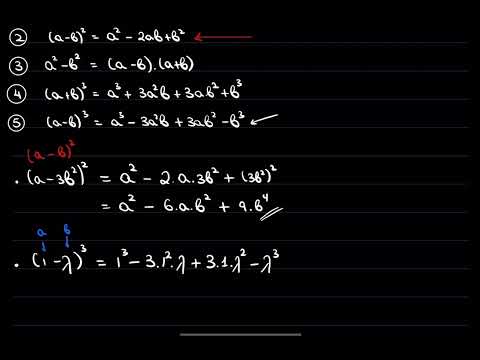 ② (a-b)² = a² - 2ab + b² ←
③ a² - b² = (a-b).(a+b)
④ (a+b)² = a³ + 3a²b + 3ab² + b³
⑤ (a-b)³ = a³ - 3a²b + 3ab² - b³
(a-b)²
. (a-3b²)² = a² - 2.a.3b² + (3b²)²
= a² - 6.a.b² + 9.b⁴
a b
. (1-λ)³ = 1³ - 3.1².λ + 3.1.λ² - λ³